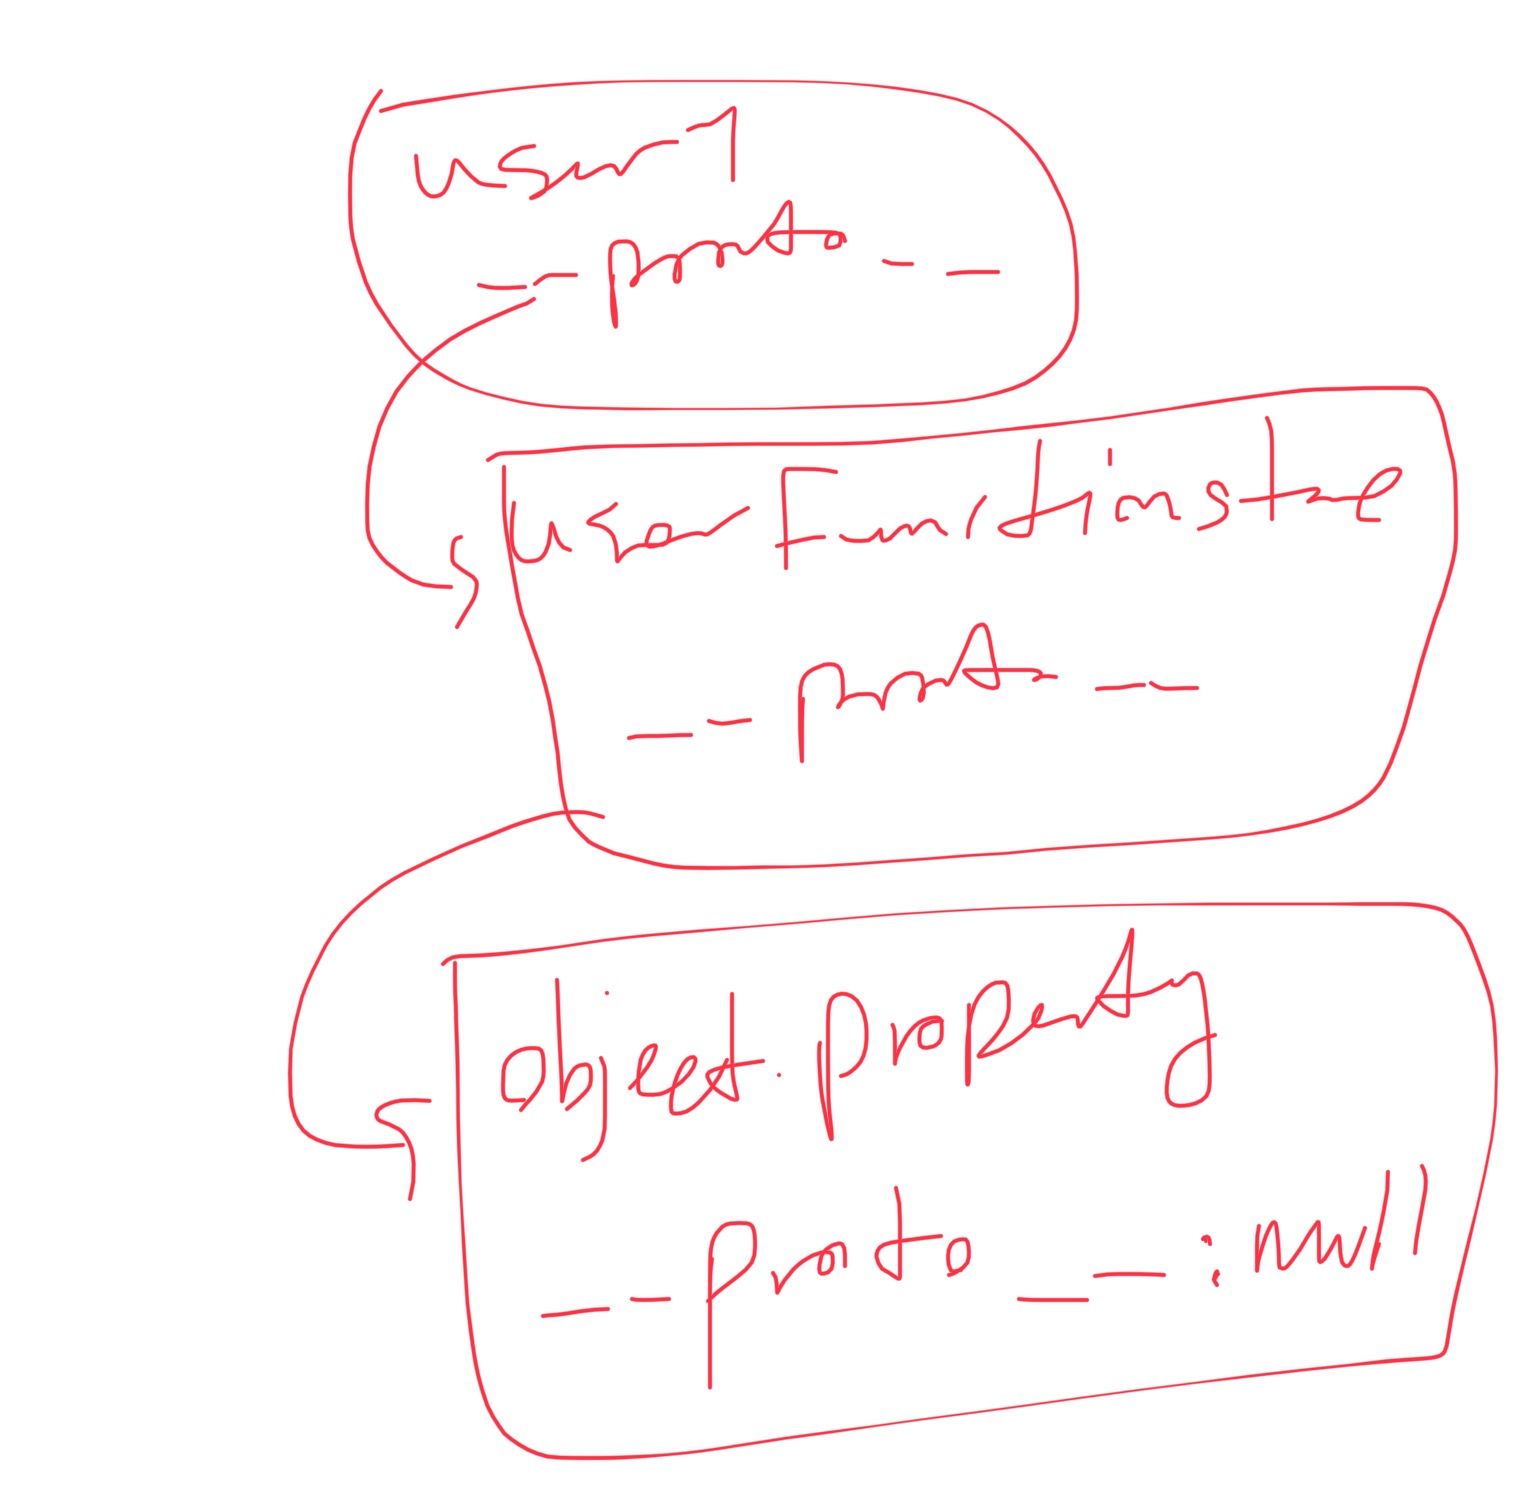 user1
__proto__
userFunctionstore
__proto__
object.property
__proto__:null